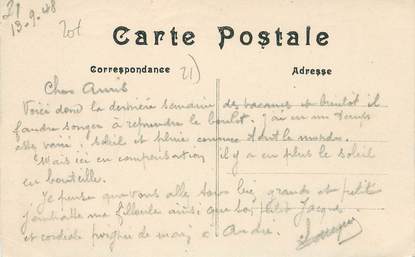 21
13-9-48
201
Carte Postale
Correspondance
21)
Adresse
Chers Amis
Voici donc la dernière semaine de vacances et bientôt il
faudra songer à reprendre le boulot. j'ai eu un temps
assez varié: soleil et pluie comme tout le monde.
Mais ici en compensation il y a en plus le soleil
en bouteille.
Je pense que vous allez tous bien, grands et petits
j'embrasse ma filleule ainsi que le petit Jacques
et cordiale poignée de main à André.